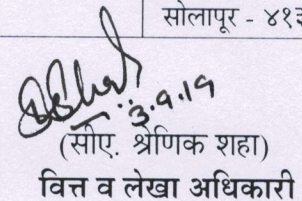 सोलापूर - ४१३
3.9.19
(सीए. श्रेणिक शहा)
वित्त व लेखा अधिकारी